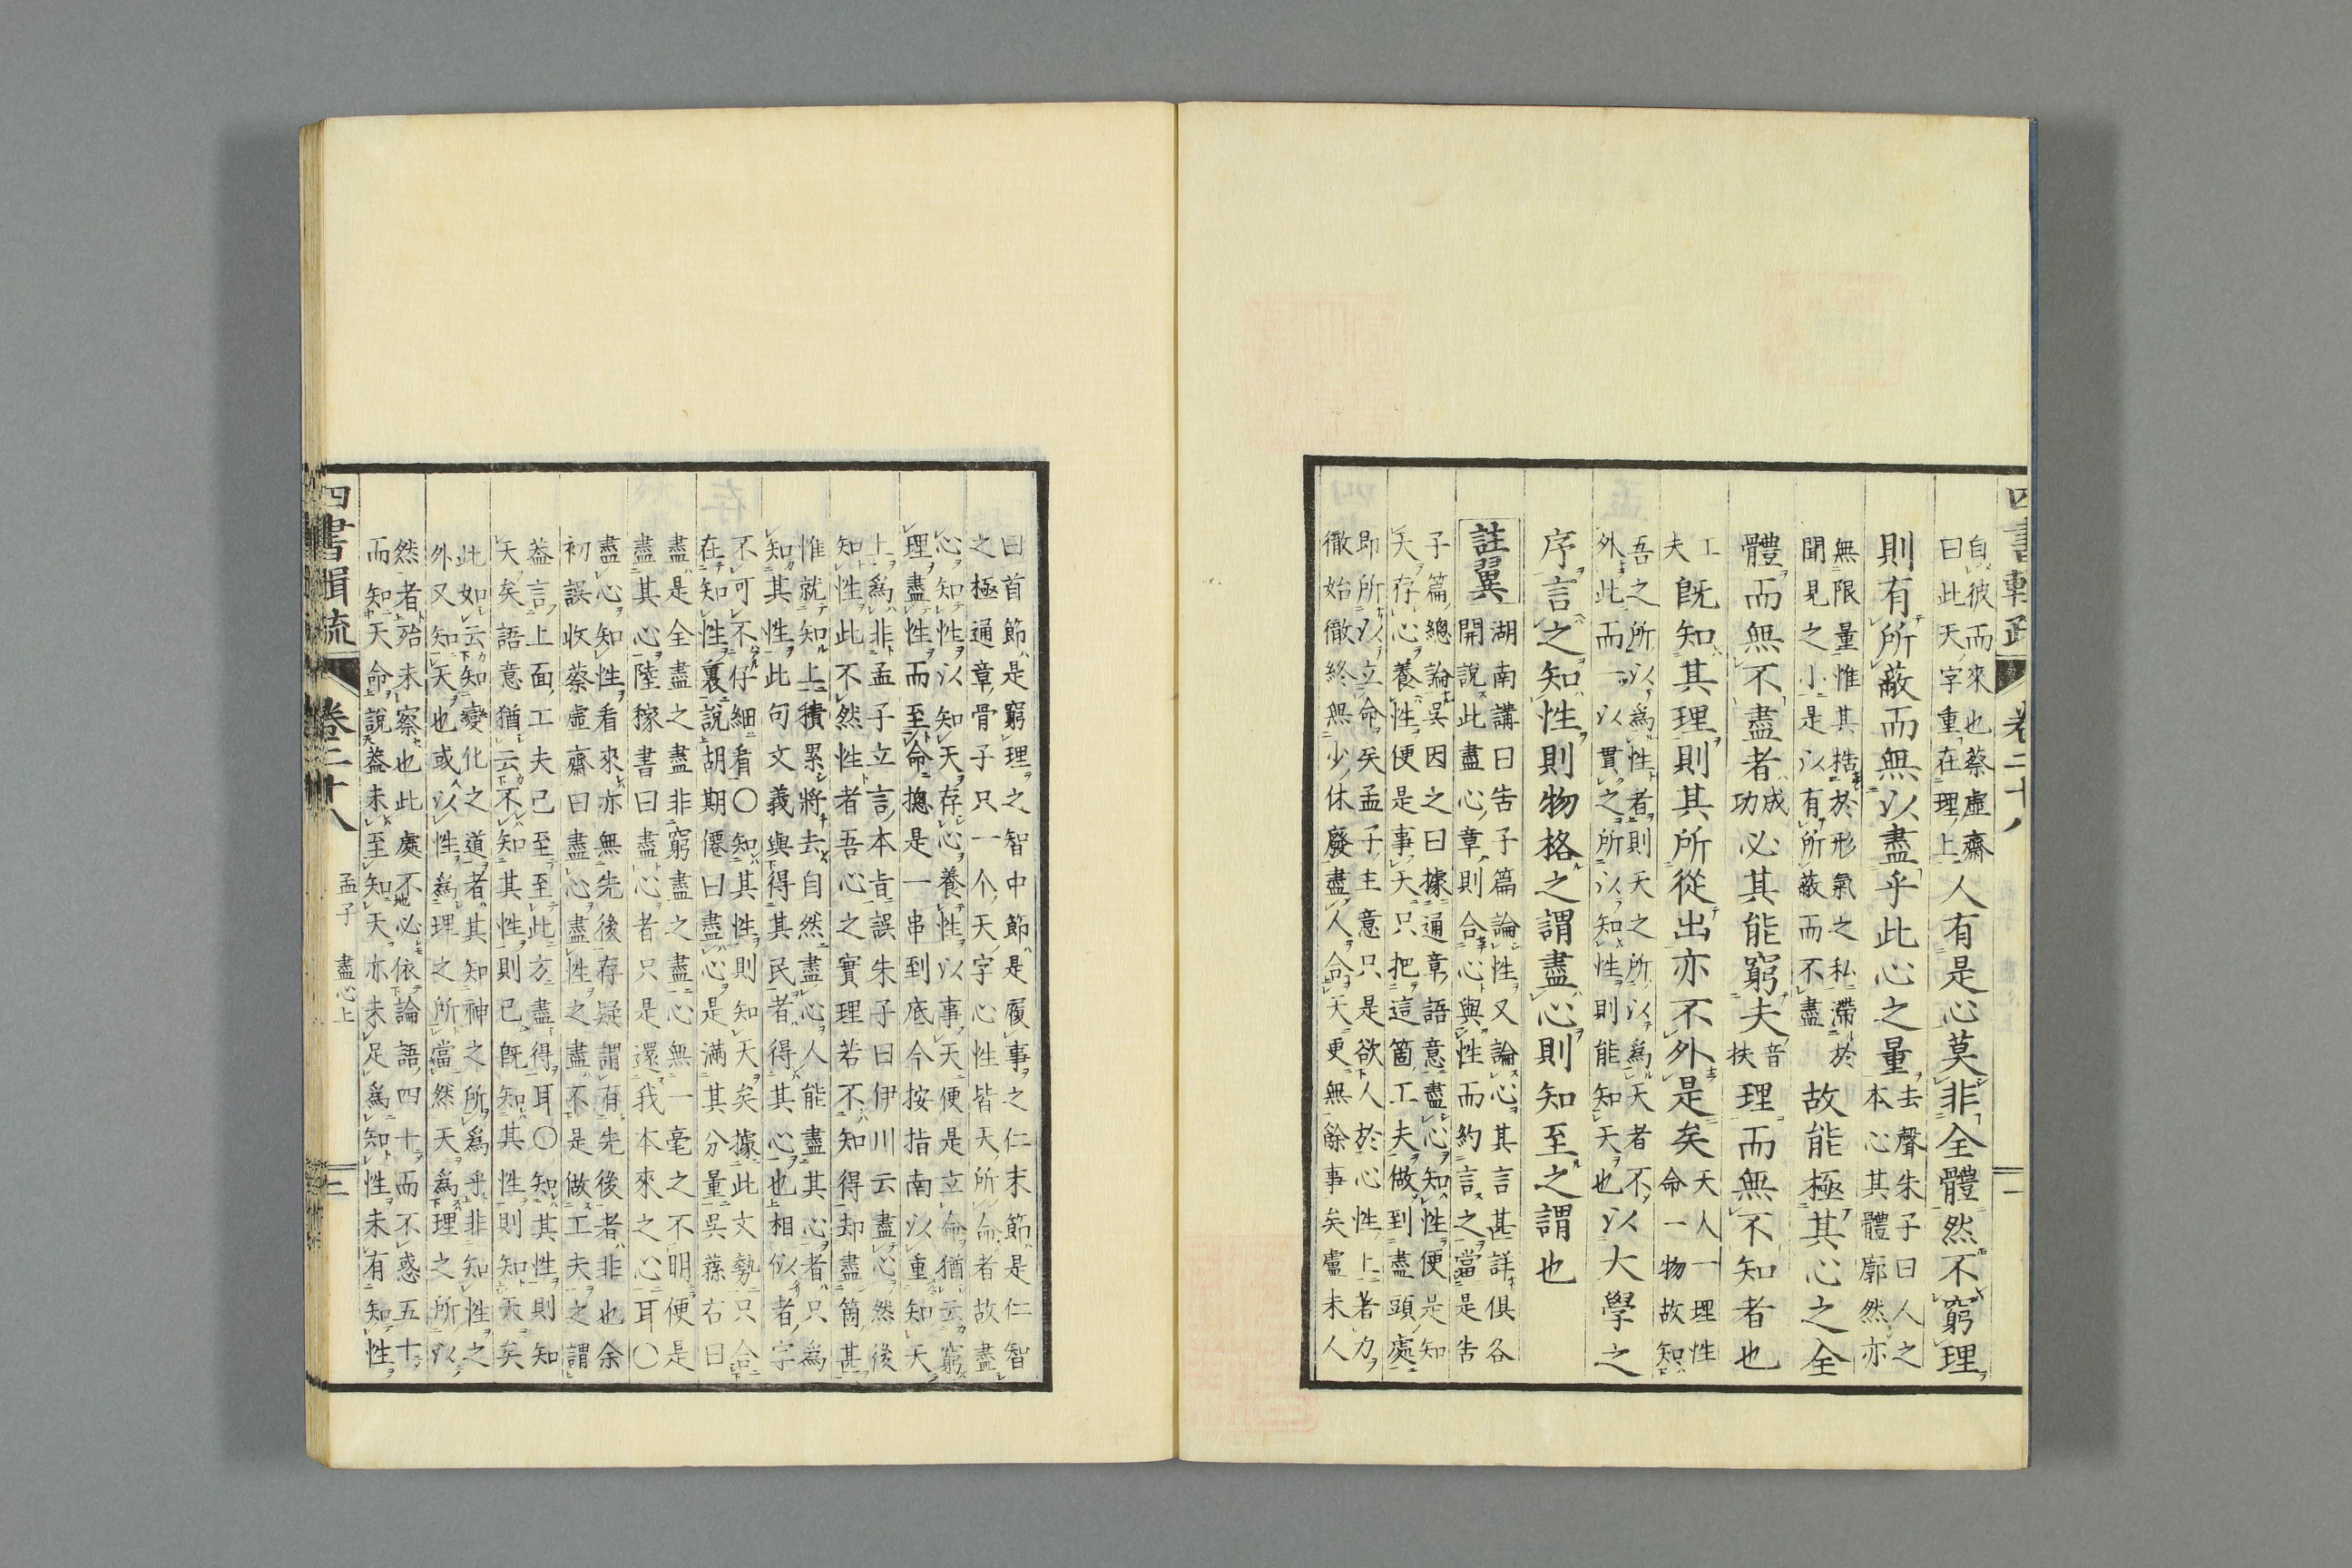 四書輯疏 卷二十八 二
自彼而來也蔡虛齋
曰此天字重在理上
人有是心莫非全體然不窮理
則有所蔽而無以盡乎此心之量
去聲朱子曰人之
本心其體廓然亦
無限量惟其梏於形氣之私滯於
聞見之小是以有所蔽而不盡
故能極其心之全
體而無不盡者
成
功
必其能窮夫
音
扶
理而無不知者也
工
夫
既知其理則其所從出亦不外是矣
天人一理性
命一物故知
吾之所以爲性者則天之所以爲天者不
外此而一以貫之所以知性則能知天也
以大學之
序言之知性則物格之謂盡心則知至之謂也
註翼
湖南講曰告子篇論性又論心其言甚詳俱各
開說此盡心章則合心與性而約言之當是告
子篇總論吳因之曰據通章語意盡心知性便是知
天存心養性便是事天只把這箇工夫做到盡頭處
即所以立命矣孟子主意只是欲人於心性上著力
徹始徹終無少休廢盡人合天更無餘事矣盧未人
曰首節是窮理之智中節是履事之仁末節是仁智
之極通章骨子只一个天字心性皆天所命者故盡
心知性以知天存心養性以事天便是立命猶云窮
理盡性而至命摠是一串到底今按指南以重知天
上爲非孟子立言本旨誤朱子曰伊川云盡心然後
知性此不然性者吾心之實理若不知得却盡箇甚
惟就知上積累將去自然盡心人能盡其心者只爲
知其性此句文義與得其民者得其心也相似者字
不可不仔細看〇知其性則知天矣據此文勢只合
在知性裏說胡期僊曰盡心是滿其分量吳蓀右曰
盡是全盡之盡非窮盡之盡心無一毫之不明便是
盡其心陸稼書曰盡心者只是還我本來之心耳〇
盡心知性看來亦無先後存疑謂有先後者非也余
初誤收蔡虛齋曰盡心盡性之盡不是做工夫之謂
蓋言上面工夫已至至此方盡得耳〇知其性則知
天矣語意猶云不知其性則已既知其性則知天矣
此如云知變化之道者其知神之所爲乎非知性之
外又知天也或以性爲理之所當然天爲理之所以
然者殆未察也此處不必依論語四十而不惑五十
而知天命說蓋未至知天亦未足爲知性未有知性
四書輯疏 卷二十八 孟子 盡心上 三